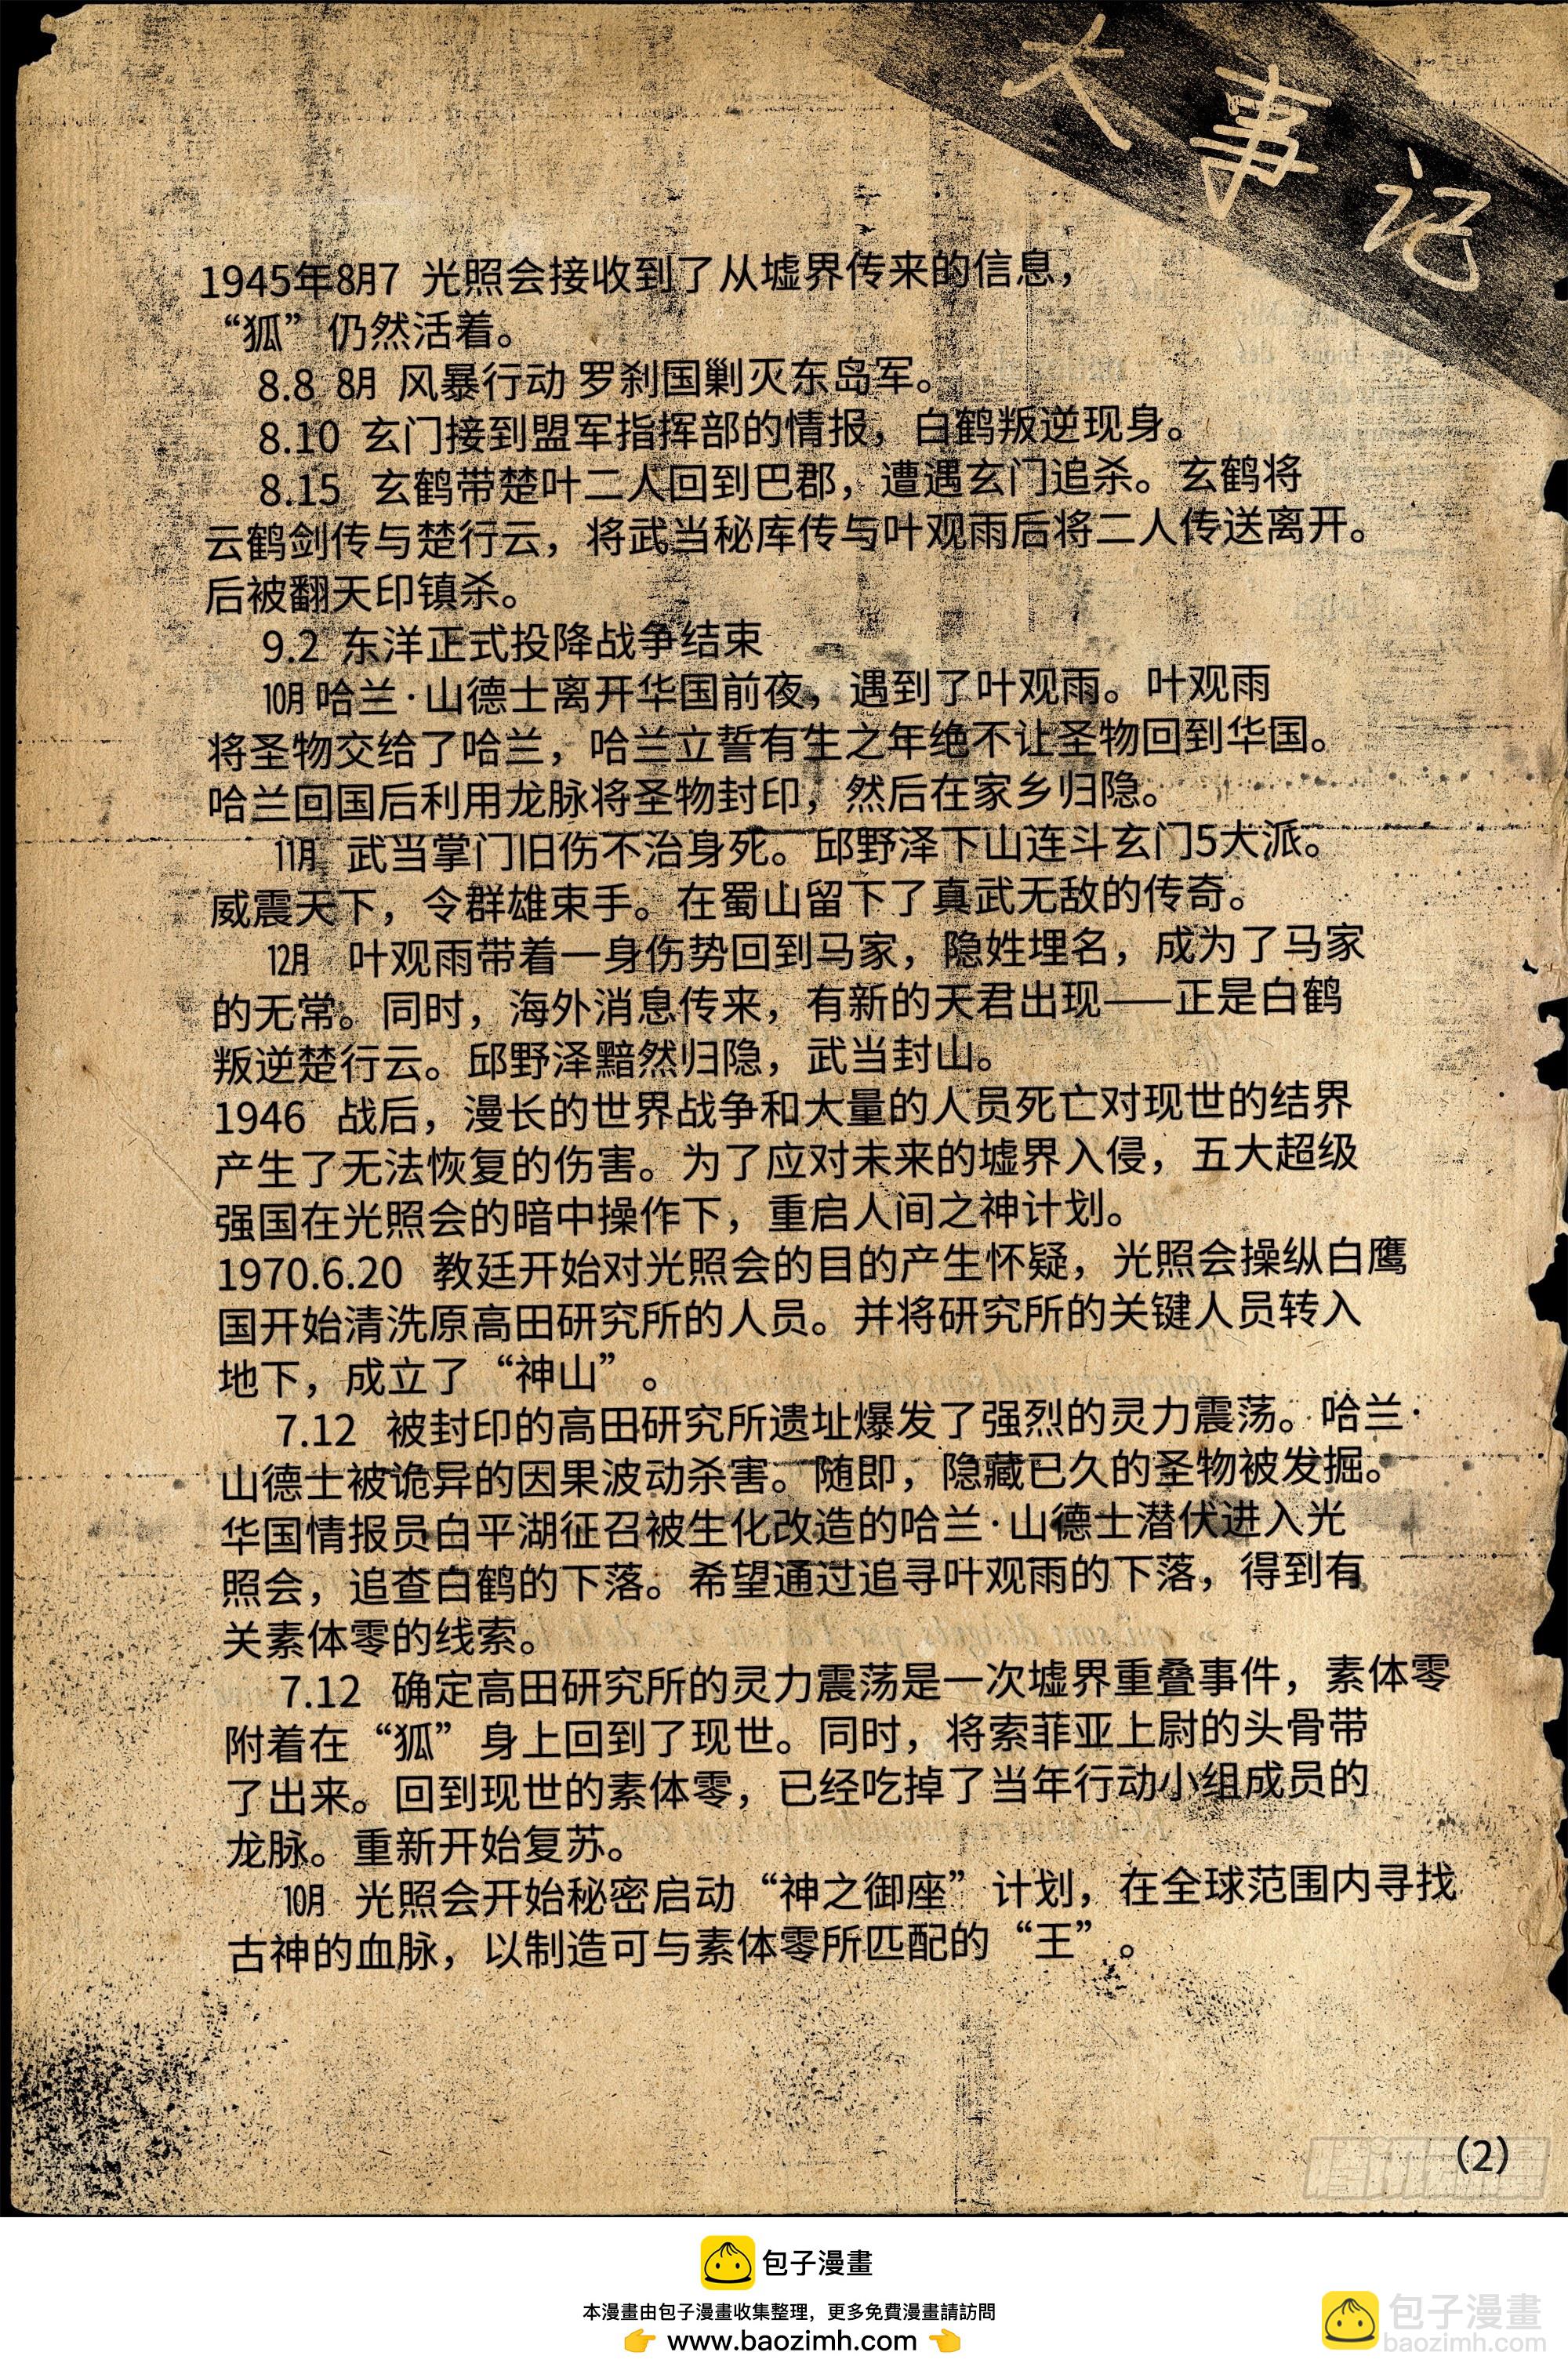 大事记
1945年8月7 光照会接收到了从墟界传来的信息，
“狐”仍然活着。
8.8 8月 风暴行动 罗刹国剿灭东岛军。
8.10 玄门接到盟军指挥部的情报，白鹤叛逆现身。
8.15 玄鹤带楚叶二人回到巴郡，遭遇玄门追杀。玄鹤将
云鹤剑传与楚行云，将武当秘库传与叶观雨后将二人传送离开。
后被翻天印镇杀。
9.2 东洋正式投降战争结束
10月 哈兰·山德士离开华国前夜，遇到了叶观雨。叶观雨
将圣物交给了哈兰，哈兰立誓有生之年绝不让圣物回到华国。
哈兰回国后利用龙脉将圣物封印，然后在家乡归隐。
11月 武当掌门旧伤不治身死。邱野泽下山连斗玄门5大派。
威震天下，令群雄束手。在蜀山留下了真武无敌的传奇。
12月 叶观雨带着一身伤势回到马家，隐姓埋名，成为了马家
的无常。同时，海外消息传来，有新的天君出现——正是白鹤
叛逆楚行云。邱野泽黯然归隐，武当封山。
1946 战后，漫长的世界战争和大量的人员死亡对现世的结界
产生了无法恢复的伤害。为了应对未来的墟界入侵，五大超级
强国在光照会的暗中操作下，重启人间之神计划。
1970.6.20 教廷开始对光照会的目的产生怀疑，光照会操纵白鹰
国开始清洗原高田研究所的人员。并将研究所的关键人员转入
地下，成立了“神山”。
7.12 被封印的高田研究所遗址爆发了强烈的灵力震荡。哈兰·
山德士被诡异的因果波动杀害。随即，隐藏已久的圣物被发掘。
华国情报员白平湖征召被生化改造的哈兰·山德士潜伏进入光
照会，追查白鹤的下落。希望通过追寻叶观雨的下落，得到有
关素体零的线索。
7.12 确定高田研究所的灵力震荡是一次墟界重叠事件，素体零
附着在“狐”身上回到了现世。同时，将索菲亚上尉的头骨带
了出来。回到现世的素体零，已经吃掉了当年行动小组成员的
龙脉。重新开始复苏。
10月 光照会开始秘密启动“神之御座”计划，在全球范围内寻找
古神的血脉，以制造可与素体零所匹配的“王”。
（2）
包子漫畫
本漫畫由包子漫畫收集整理，更多免費漫畫請訪問
👉 www.baozimh.com 👈
包子漫畫
baozimh.com